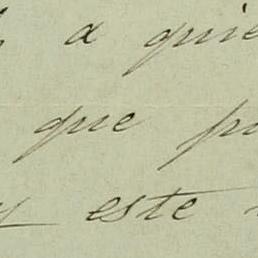 a quie
que pu
y este